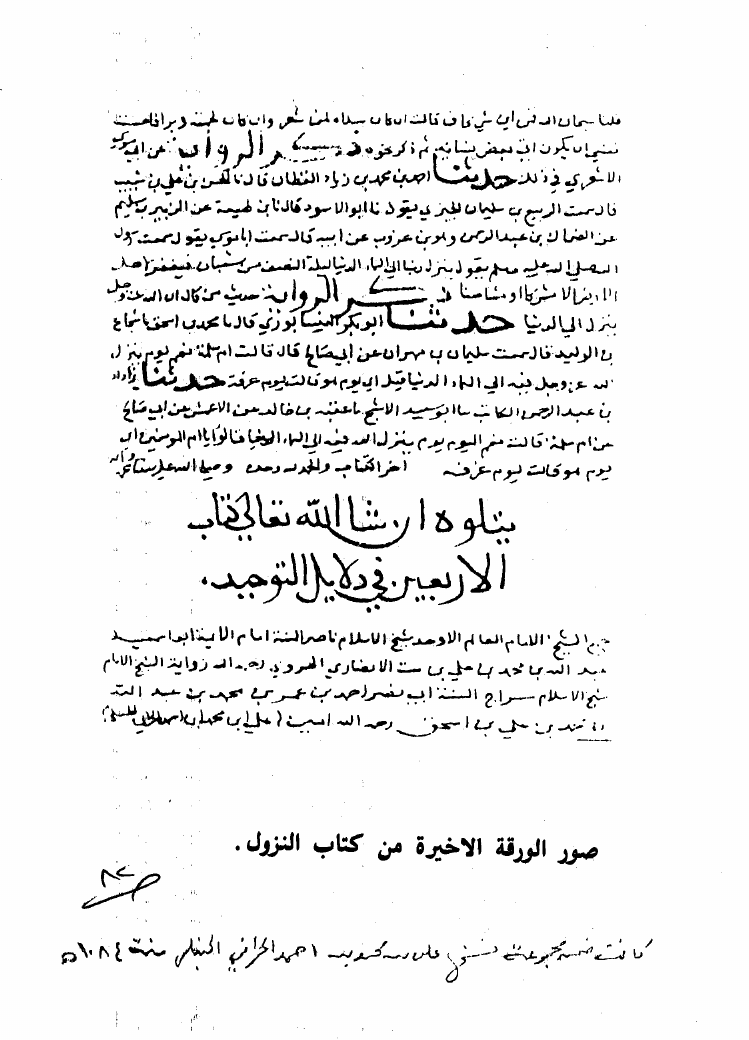 فقلنا سبحان الله من اي شي كان قالت ان كان سداه لمن شعر وان كان لحمته
يكون اتى بعض نسائه ثم ذكر نحوه ذكر الرواية عن ابي موسى
الاشعري في ذلك حدثنا احمد بن محمد بن زياد القطان قال نا الحسن بن علي بن شبيب
قال سمعت الربيع بن سليمان الجيزي يقول نا ابو الاسود قال نا بن لهيعة عن الزبير بن سليم
عن الضحاك بن عبد الرحمن وهو بن عرزب عن ابيه قال سمعت ابا موسى يقول سمعت رسول
الله صلى الله عليه وسلم يقول ينزل ربنا الى السماء الدنيا ليلة النصف من شعبان فيغفر لاهل
الارض الا مشركا او مشاحنا ذكر الرواية حديث من قال ان الله عز وجل
ينزل الى الدنيا حدثنا ابو بكر النيسابوري قال نا محمد بن اسحق نا شجاع
بن الوليد قال سمعت سليمان بن مهران عن ابي صالح قال قالت ام سلمة نعم يوم ينزل
الله عز وجل فيه الى السماء الدنيا قيل اي يوم هو قالت يوم عرفة حدثنا
بن عبد الرحمن الكاتب نا ابو سعيد الاشج نا عقبة بن خالد عن الاعمش عن ابي صالح
عن ام سلمة قالت نعم اليوم يوم ينزل الله فيه الى السماء الدنيا قالوا يا ام المومنين اي
يوم هو قالت يوم عرفة اخر الكتاب والحمد لله وحده وصلى الله على
يتلوه ان شا الله تعالى كتاب
الاربعين في دلايل التوحيد.
الشيخ الامام العالم الاوحد شيخ الاسلام ناصر السنة امام الايمة ابو اسمعيل
عبد الله بن محمد بن علي بن مت الانصاري الهروي رحمه الله رواية الشيخ الامام
شيخ الاسلام سراج السنة ابي نصر احمد بن عمر بن محمد بن عبد الله
بن علي بن اسحق رحمه الله
صور الورقة الاخيرة من كتاب النزول.
كانت ضمن مجموعة احمد الحراني الحنبلي سنة ١٠٨٤ ه